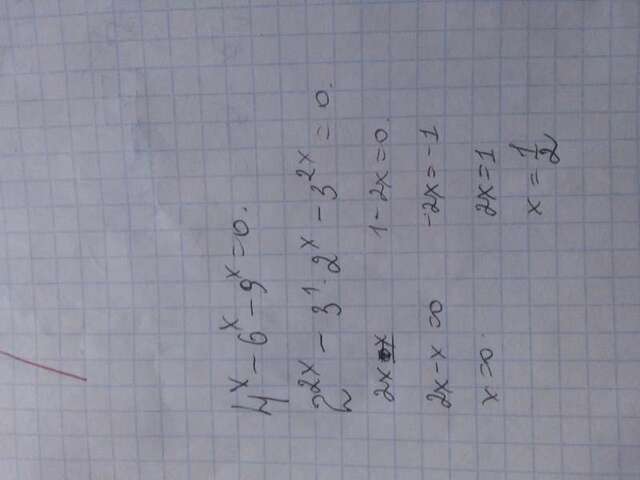 4^x - 6^x - 9^x = 0.
2^2x - 3^1 · 2^x - 3^2x = 0.
2x 1 - 2x = 0.
2x - x = 0 -2x = -1
x = 0. 2x = 1
x = 1/2